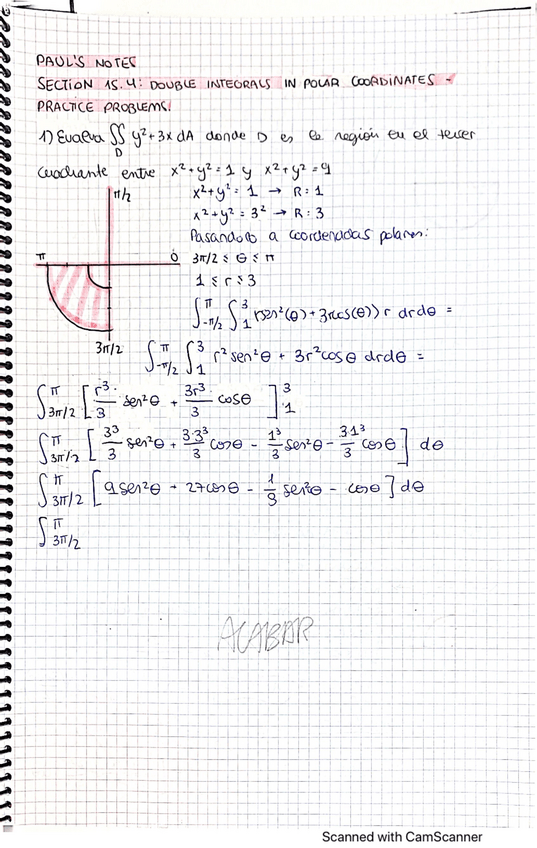 PAUL'S NOTES
SECTION 15.4: DOUBLE INTEGRALS IN POLAR COORDINATES -
PRACTICE PROBLEMS.
1) Evalva ∬_D y²+3x dA donde D es la región en el tercer
cuadrante entre x²+y²=1 y x²+y²=9
π/2
x²+y²=1 → R:1
x²+y²=3² → R:3
Pasandolo a coordenadas polares:
π
0
3π/2 ≤ θ ≤ π
1 ≤ r ≤ 3
∫_{-π/2}^{π} ∫_1^3 rsen²(θ)+3rcos(θ))r drdθ =
3π/2
∫_{-π/2}^{π} ∫_1^3 r²sen²θ + 3r²cosθ drdθ =
∫_{3π/2}^{π} [r³/3 sen²θ + 3r³/3 cosθ]_1^3
∫_{3π/2}^{π} [3³/3 sen²θ + 3·3³/3 cosθ - 1³/3 sen²θ - 3·1³/3 cosθ] dθ
∫_{3π/2}^{π} [9sen²θ + 27cosθ - 1/3 sen²θ - cosθ] dθ
∫_{3π/2}^{π}
ACABAR
Scanned with CamScanner